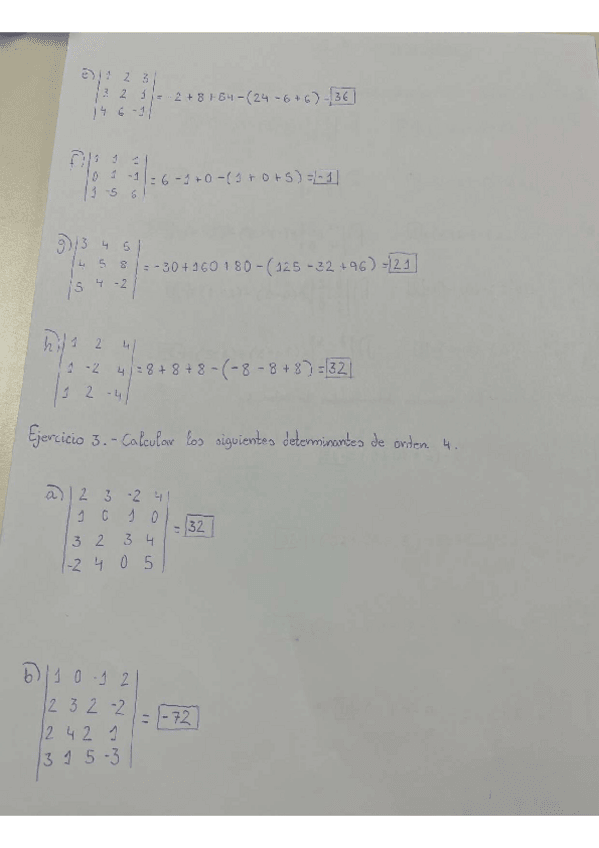 e) |1 2 3|
|3 2 1| = -2+8+54-(24-6+6) = 36
|4 6 -1|
f) |1 1 1|
|0 1 -1| = 6-1+0-(1+0+5) = -1
|1 -5 6|
g) |3 4 5|
|4 5 8| = -30+160+80-(125-32+96) = 21
|5 4 -2|
h) |1 2 4|
|1 -2 4| = 8+8+8-(-8-8+8) = 32
|1 2 -4|
Ejercicio 3.- Calcular los siguientes determinantes de orden 4.
a) |2 3 -2 4|
|1 0 1 0|
|3 2 3 4| = 32
|-2 4 0 5|
b) |1 0 -1 2|
|2 3 2 -2|
|2 4 2 1| = -72
|3 1 5 -3|